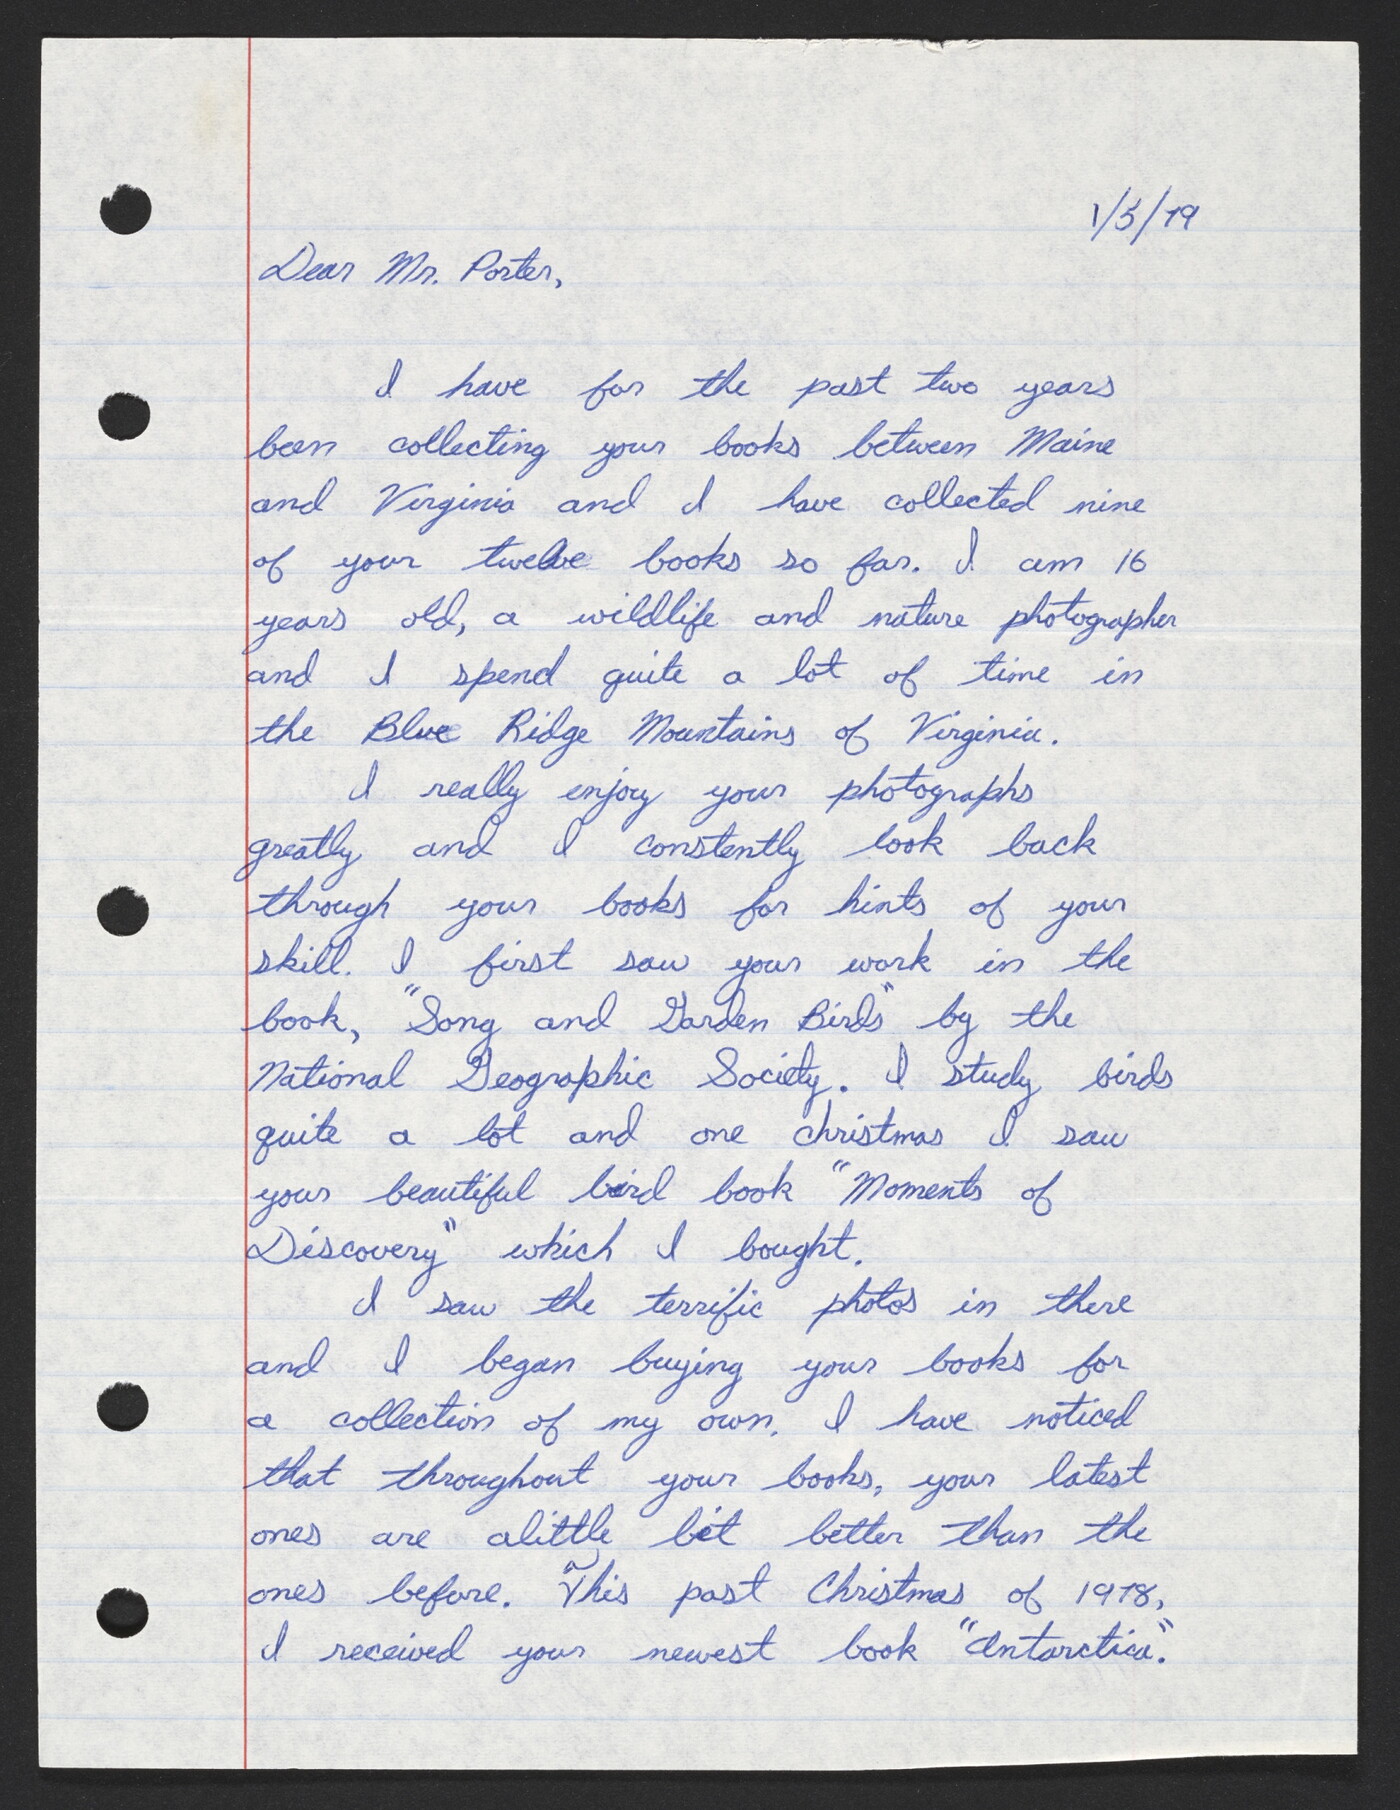 1/5/79
Dear Mr. Porter,
I have for the past two years
been collecting your books between Maine
and Virginia and I have collected nine
of your twelve books so far. I am 16
years old, a wildlife and nature photographer
and I spend quite a lot of time in
the Blue Ridge Mountains of Virginia.
I really enjoy your photographs
greatly and I constently look back
through your books for hints of your
skill. I first saw your work in the
book, "Song and Garden Birds" by the
National Geographic Society. I study birds
quite a lot and one christmas I saw
your beautiful bird book "Moments of
Discovery" which I bought.
I saw the terrific photos in there
and I began buying your books for
a collection of my own. I have noticed
that throughout your books, your latest
ones are alittle bit better than the
ones before. This past Christmas of 1978,
I received your newest book "Antarctica".